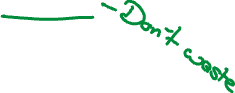 - Don't waste